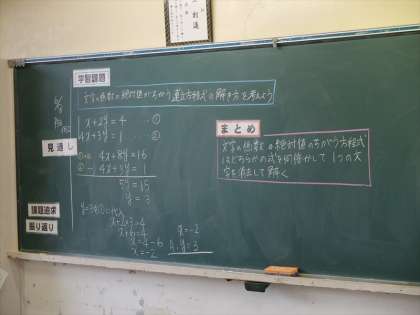 学習課題
文字の係数の絶対値がちがう連立方程式の解き方を考えよう
x+2y=4 …①
4x+3y=1 …②
見通し
①×4 4x+8y=16
②- 4x+3y=1
5y=15
y=3
課題追求
振り返り
x+2×3=4
x+6=4
x=4-6
x=-2
x=-2
y=3
まとめ
文字の係数の絶対値のちがう方程式
はどちらかの式を何倍かして1つの文
字を消去して解く